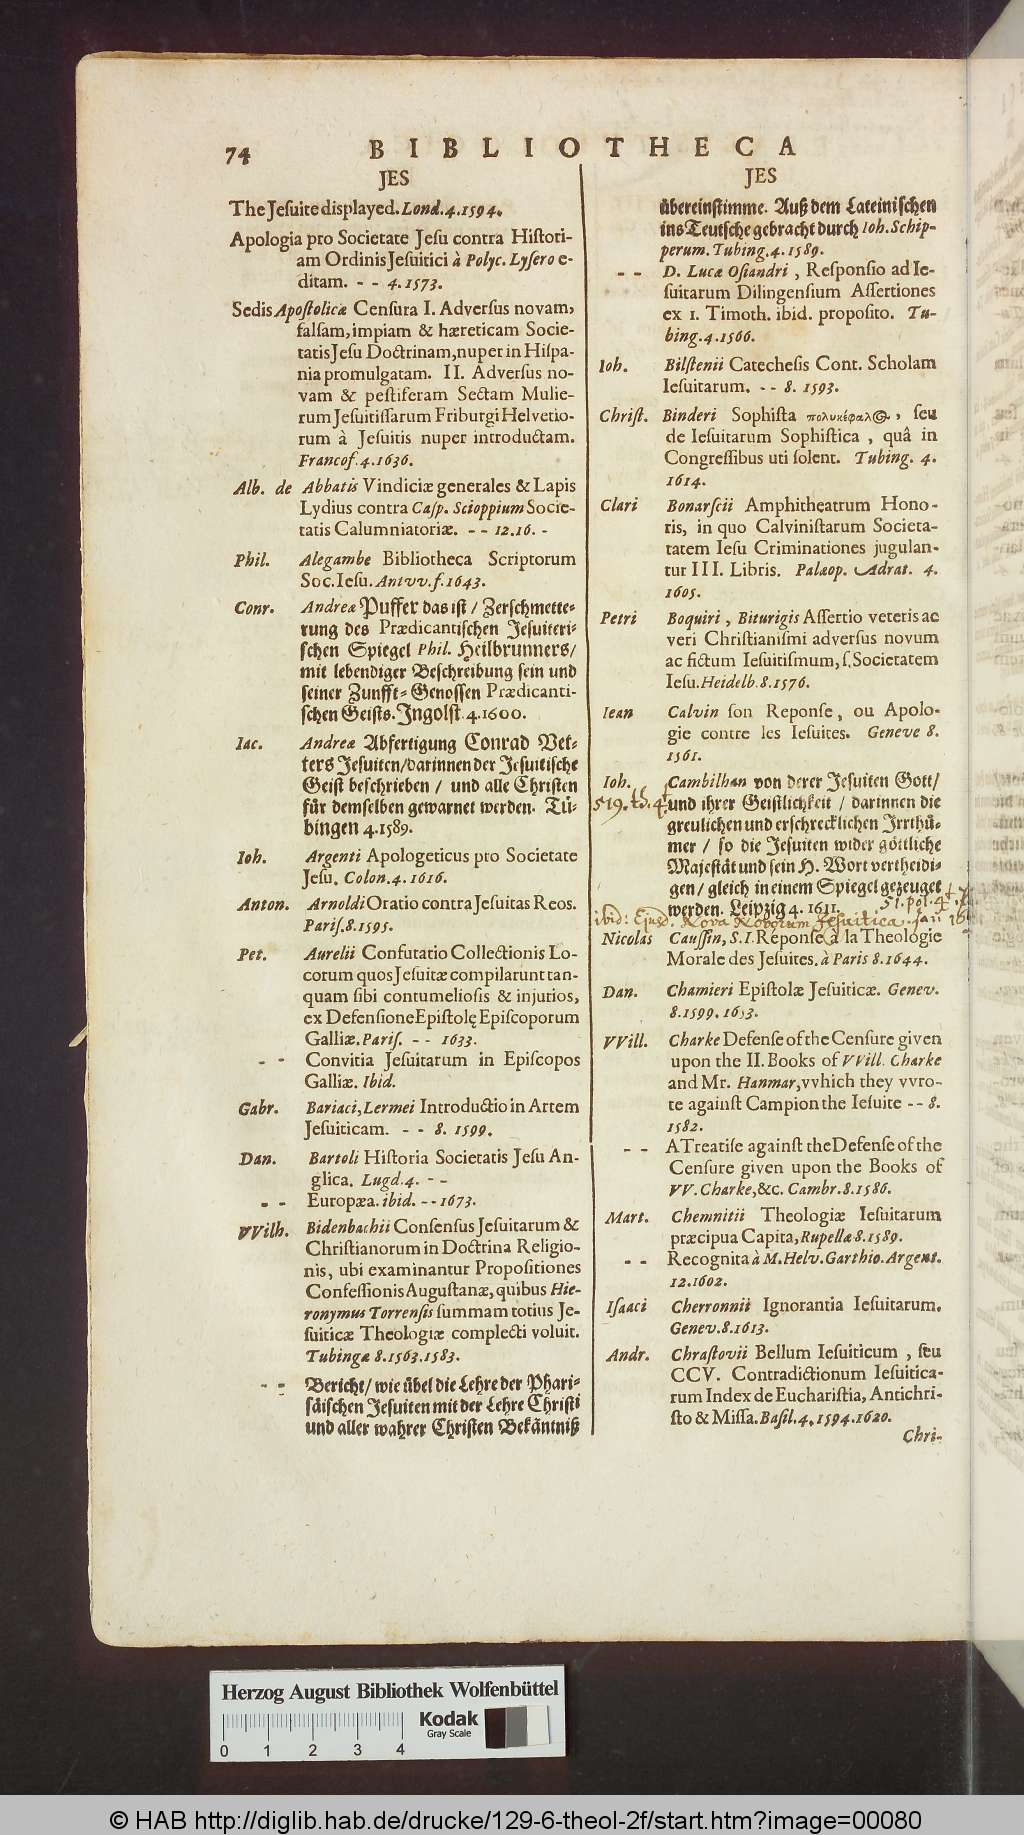 74 BIBLIOTHECA
JES
The Jeſuite displayed. Lond. 4. 1594.
Apologia pro Societate Jeſu contra Hiſtori-
am Ordinis Jeſuitici à Polyc. Lyſero e-
ditam. - - 4. 1573.
Sedis Apoſtolicæ Cenſura I. Adverſus novam,
falſam, impiam & hæreticam Socie-
tatis Jeſu Doctrinam, nuper in Hiſpa-
nia promulgatam. II. Adverſus no-
vam & peſtiferam Sectam Mulie-
rum Jeſuitiſſarum Friburgi Helvetio-
rum à Jeſuitis nuper introductam.
Francof. 4. 1636.
Alb. de Abbatis Vindiciæ generales & Lapis
Lydius contra Caſp. Scioppium Socie-
tatis Calumniatoriæ. - - 12. 16. -
Phil. Alegambe Bibliotheca Scriptorum
Soc. Ieſu. Antvv. f. 1643.
Conr. Andreæ Puffer das iſt / Zerſchmette-
rung des Prædicantiſchen Jeſuiteri-
ſchen Spiegel Phil. Heilbrunners /
mit lebendiger Beſchreibung ſein und
ſeiner Zunfft-Genoſſen Prædicanti-
ſchen Geiſts. Ingolſt. 4. 1600.
Iac. Andreæ Abfertigung Conrad Vet-
ters Jeſuiten / darinnen der Jeſuitiſche
Geiſt beſchrieben / und alle Chriſten
für demſelben gewarnet werden. Tü-
bingen 4. 1589.
Ioh. Argenti Apologeticus pro Societate
Jeſu. Colon. 4. 1616.
Anton. Arnoldi Oratio contra Jeſuitas Reos.
Pariſ. 8. 1595.
Pet. Aurelii Confutatio Collectionis Lo-
corum quos Jeſuitæ compilarunt tan-
quam ſibi contumelioſis & injurios,
ex Defenſione Epiſtolę Epiſcoporum
Galliæ. Pariſ. - - 1633.
- - Convitia Jeſuitarum in Epiſcopos
Galliæ. Ibid.
Gabr. Bariaci, Lermei Introductio in Artem
Jeſuiticam. - - 8. 1599.
Dan. Bartoli Hiſtoria Societatis Jeſu An-
glica. Lugd. 4. - -
- - Europæa. ibid. - - 1673.
VVilh. Bidenbachii Conſenſus Jeſuitarum &
Chriſtianorum in Doctrina Religio-
nis, ubi examinantur Propoſitiones
Confeſſionis Auguſtanæ, quibus Hie-
ronymus Torrenſis ſummam totius Je-
ſuiticæ Theologiæ complecti voluit.
Tubingæ 8. 1563. 1583.
- - Bericht / wie übel die Lehre der Phari-
ſäiſchen Jeſuiten mit der Lehre Chriſti
und aller wahrer Chriſten Bekäntniß
JES
übereinſtimme. Auß dem Lateiniſchen
ins Teutſche gebracht durch Ioh. Schip-
perum. Tubing. 4. 1589.
- - D. Lucæ Oſiandri, Reſponſio ad Ie-
ſuitarum Dilingenſium Aſſertiones
ex 1. Timoth. ibid. propoſito. Tu-
bing. 4. 1566.
Ioh. Bilſtenii Catecheſis Cont. Scholam
Ieſuitarum. - - 8. 1593.
Chriſt. Binderi Sophiſta πολυκέφαλ., ſeu
de Ieſuitarum Sophiſtica, quâ in
Congreſſibus uti ſolent. Tubing. 4.
1614.
Clari Bonarſcii Amphitheatrum Hono-
ris, in quo Calviniſtarum Societa-
tatem Ieſu Criminationes jugulan-
tur III. Libris. Palæop. Adrat. 4.
1605.
Petri Boquiri, Biturigis Aſſertio veteris ac
veri Chriſtianiſmi adverſus novum
ac fictum Ieſuitiſmum, ſ. Societatem
Ieſu. Heidelb. 8. 1576.
Iean Calvin ſon Reponſe, ou Apolo-
gie contre les Ieſuites. Geneve 8.
1561.
Ioh. Cambilhon von derer Jeſuiten Gott /
519. th. 4. und ihrer Geiſtlichkeit / darinnen die
greulichen und erſchrecklichen Irrthü-
mer / ſo die Jeſuiten wider göttliche
Majeſtät und ſein H. Wort vertheidi-
gen / gleich in einem Spiegel gezeuget
werden. Leipzig 4. 1611. 51. pol. 4
ibid: Ejusd. Nova Novorum Jeſuitica
Nicolas Cauſſin, S. I. Reponſe à la Theologie
Morale des Jeſuites. à Paris 8. 1644.
Dan. Chamieri Epiſtolæ Jeſuiticæ. Genev.
8. 1599. 1653.
VVill. Charke Defenſe of the Cenſure given
upon the II. Books of VVill. Charke
and Mr. Hanmar, vvhich they vvro-
te againſt Campion the Ieſuite - - 8.
1582.
- - A Treatiſe againſt the Defenſe of the
Cenſure given upon the Books of
VV. Charke, &c. Cambr. 8. 1586.
Mart. Chemnitii Theologiæ Ieſuitarum
præcipua Capita, Rupellæ 8. 1589.
- - Recognita à M. Helv. Garthio. Argent.
12. 1602.
Iſaaci Cherronnii Ignorantia Ieſuitarum.
Genev. 8. 1613.
Andr. Chraſtovii Bellum Ieſuiticum, ſeu
CCV. Contradictionum Ieſuitica-
rum Index de Euchariſtia, Antichri-
ſto & Miſſa. Baſil. 4. 1594. 1620.
Chri-
Herzog August Bibliothek Wolfenbüttel
Kodak
Gray Scale
0 1 2 3 4
© HAB http://diglib.hab.de/drucke/129-6-theol-2f/start.htm?image=00080